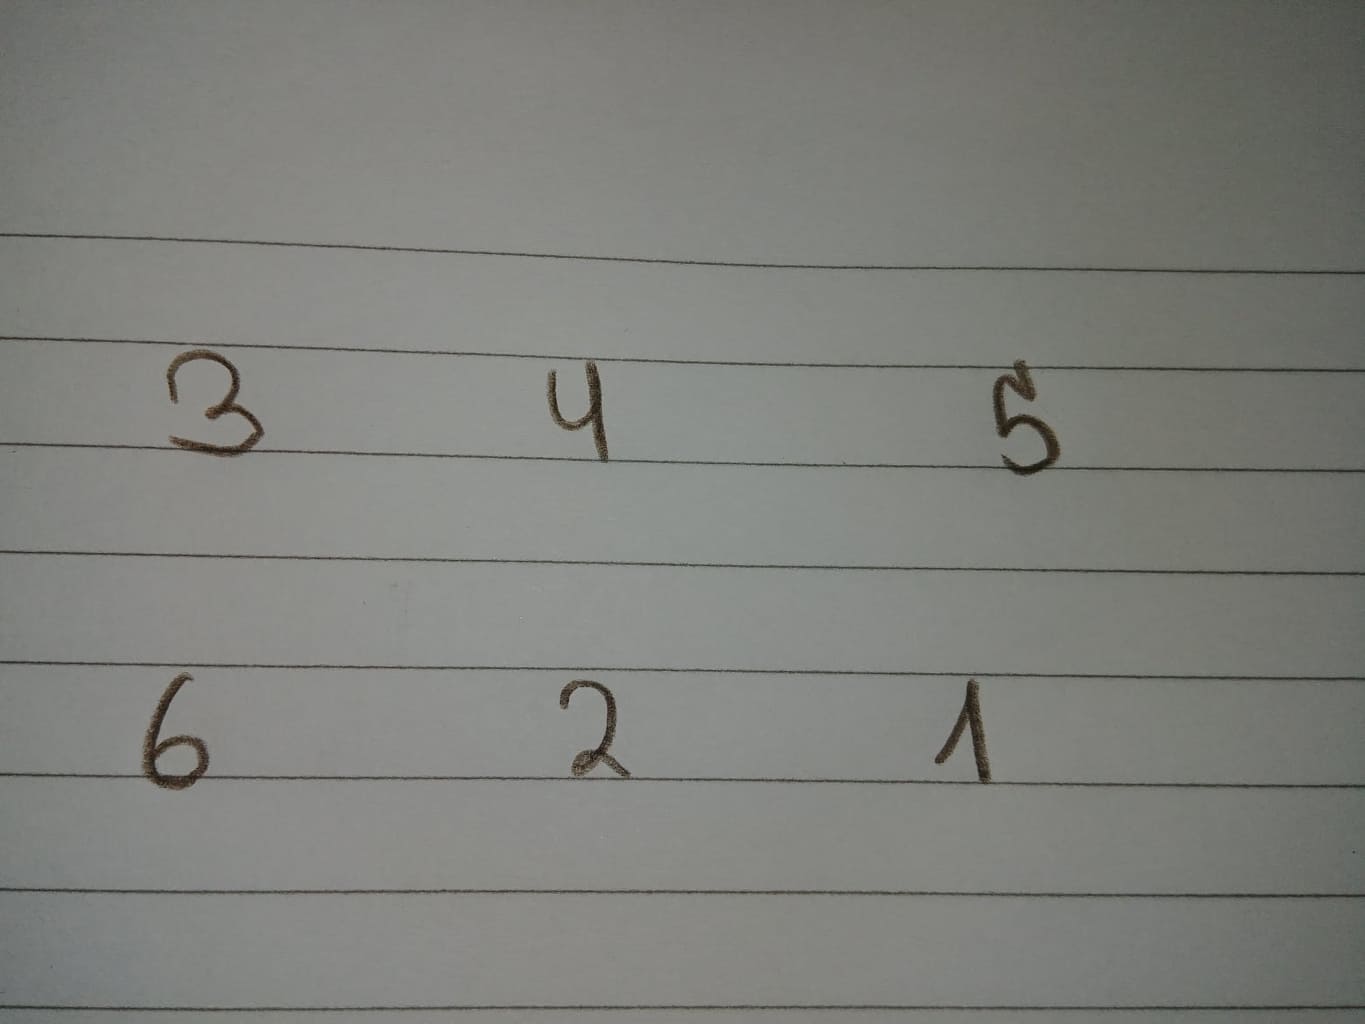 3 4 5
6 2 1